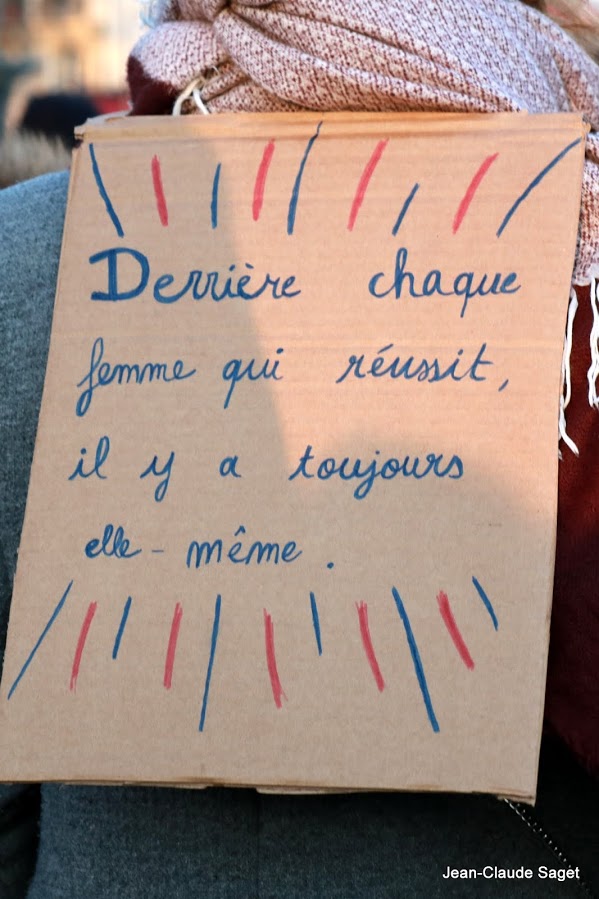 Derrière chaque
femme qui réussit,
il y a toujours
elle-même.
Jean-Claude Saget